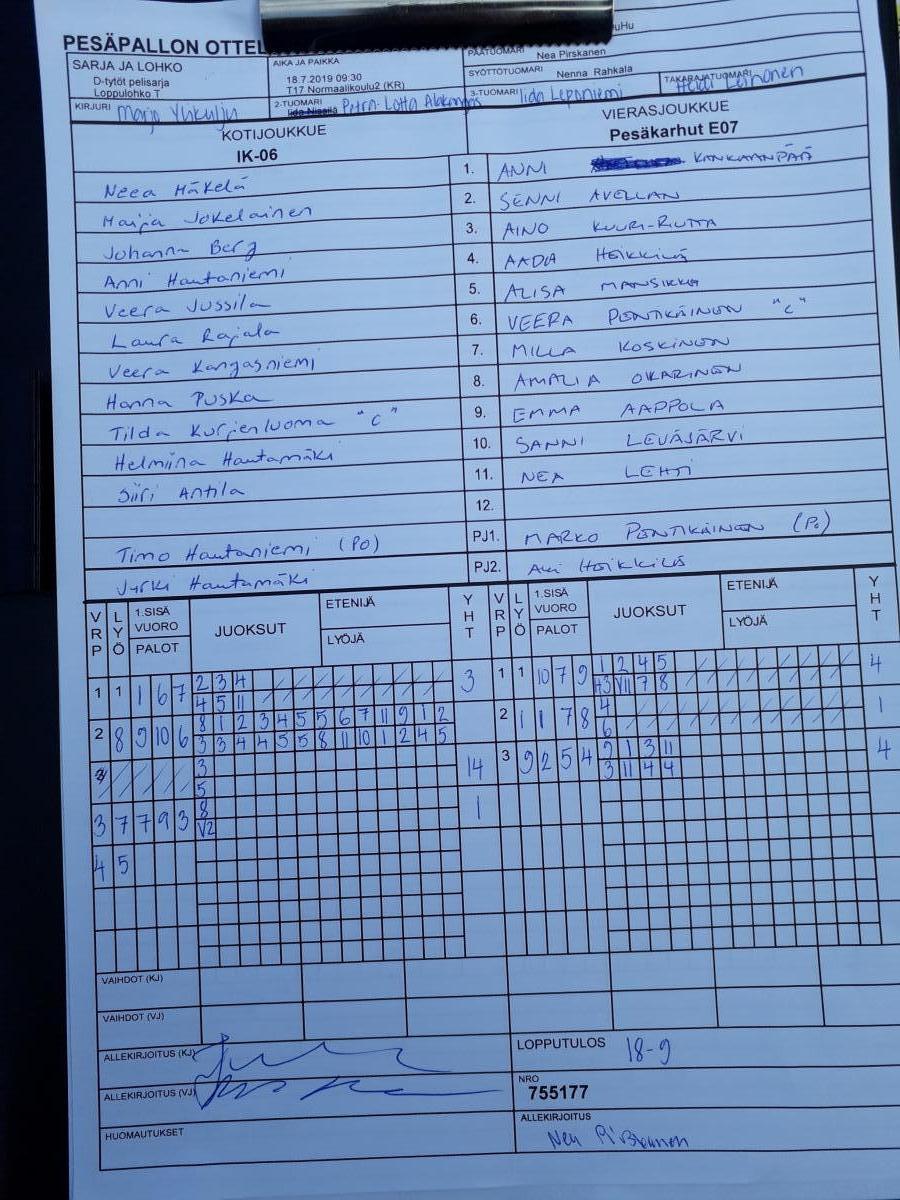 PESÄPALLON OTTEL
SARJA JA LOHKO
D-tytöt pelisarja
Loppulohko T
AIKA JA PAIKKA
18.7.2019 09:30
T17 Normaalikoulu2 (KR)
PÄÄTUOMARI Nea Pirskanen
SYÖTTÖTUOMARI Nenna Rahkala
KIRJURI Marjo Ylikulju
2-TUOMARI Petra-Lotta
3-TUOMARI Iida Leponiemi
TAKARAJATUOMARI Heidi Leinonen
KOTIJOUKKUE
IK-06
VIERASJOUKKUE
Pesäkarhut E07
Neea Mäkelä 1. ANNI KANKAANPÄÄ
Maija Jokelainen 2. SENNI AVELLAN
Johanna Berg 3. AINO KUURI-RIUTTA
Anni Hautaniemi 4. AADA HEIKKILÄ
Veera Jussila 5. ALISA MANSIKKA
Laura Rajala 6. VEERA PENTIKÄINEN "C"
Veera Kangasniemi 7. MILLA KOSKINEN
Hanna Puska 8. AMALIA OKARINEN
Tilda Kurjenluoma "C" 9. EMMA AAPPOLA
Helmiina Hautamäki 10. SANNI LEVÄSJÄRVI
Siiri Antila 11. NEA LEHTI
12.
Timo Hautaniemi (PO) PJ1. MARKO PENTIKÄINEN (PO)
Jyrki Hautamäki PJ2. HEIKKILÄ
VRP LYÖ 1.SISÄ VUORO PALOT JUOKSUT ETENIJÄ LYÖJÄ YHT VRP LYÖ 1.SISÄ VUORO PALOT JUOKSUT ETENIJÄ LYÖJÄ YHT
1 1 1 6 7 2 3 4 3 1 1 10 7 9 1 2 4 5 4
4 5 11 VII 7 8
2 8 9 10 6 8 1 2 3 4 5 5 6 7 11 9 1 2 2 1 1 7 8 4 1
3 3 4 4 5 5 8 11 10 1 2 4 5 6
3 14 3 9 2 5 4 9 1 3 11 4
5 3 11 4 4
3 7 7 9 3 8 1
V2
4 5
VAIHDOT (KJ)
VAIHDOT (VJ)
ALLEKIRJOITUS (KJ)
LOPPUTULOS 18-9
ALLEKIRJOITUS (VJ)
NRO
755177
HUOMAUTUKSET
ALLEKIRJOITUS
Nea Pirskanen